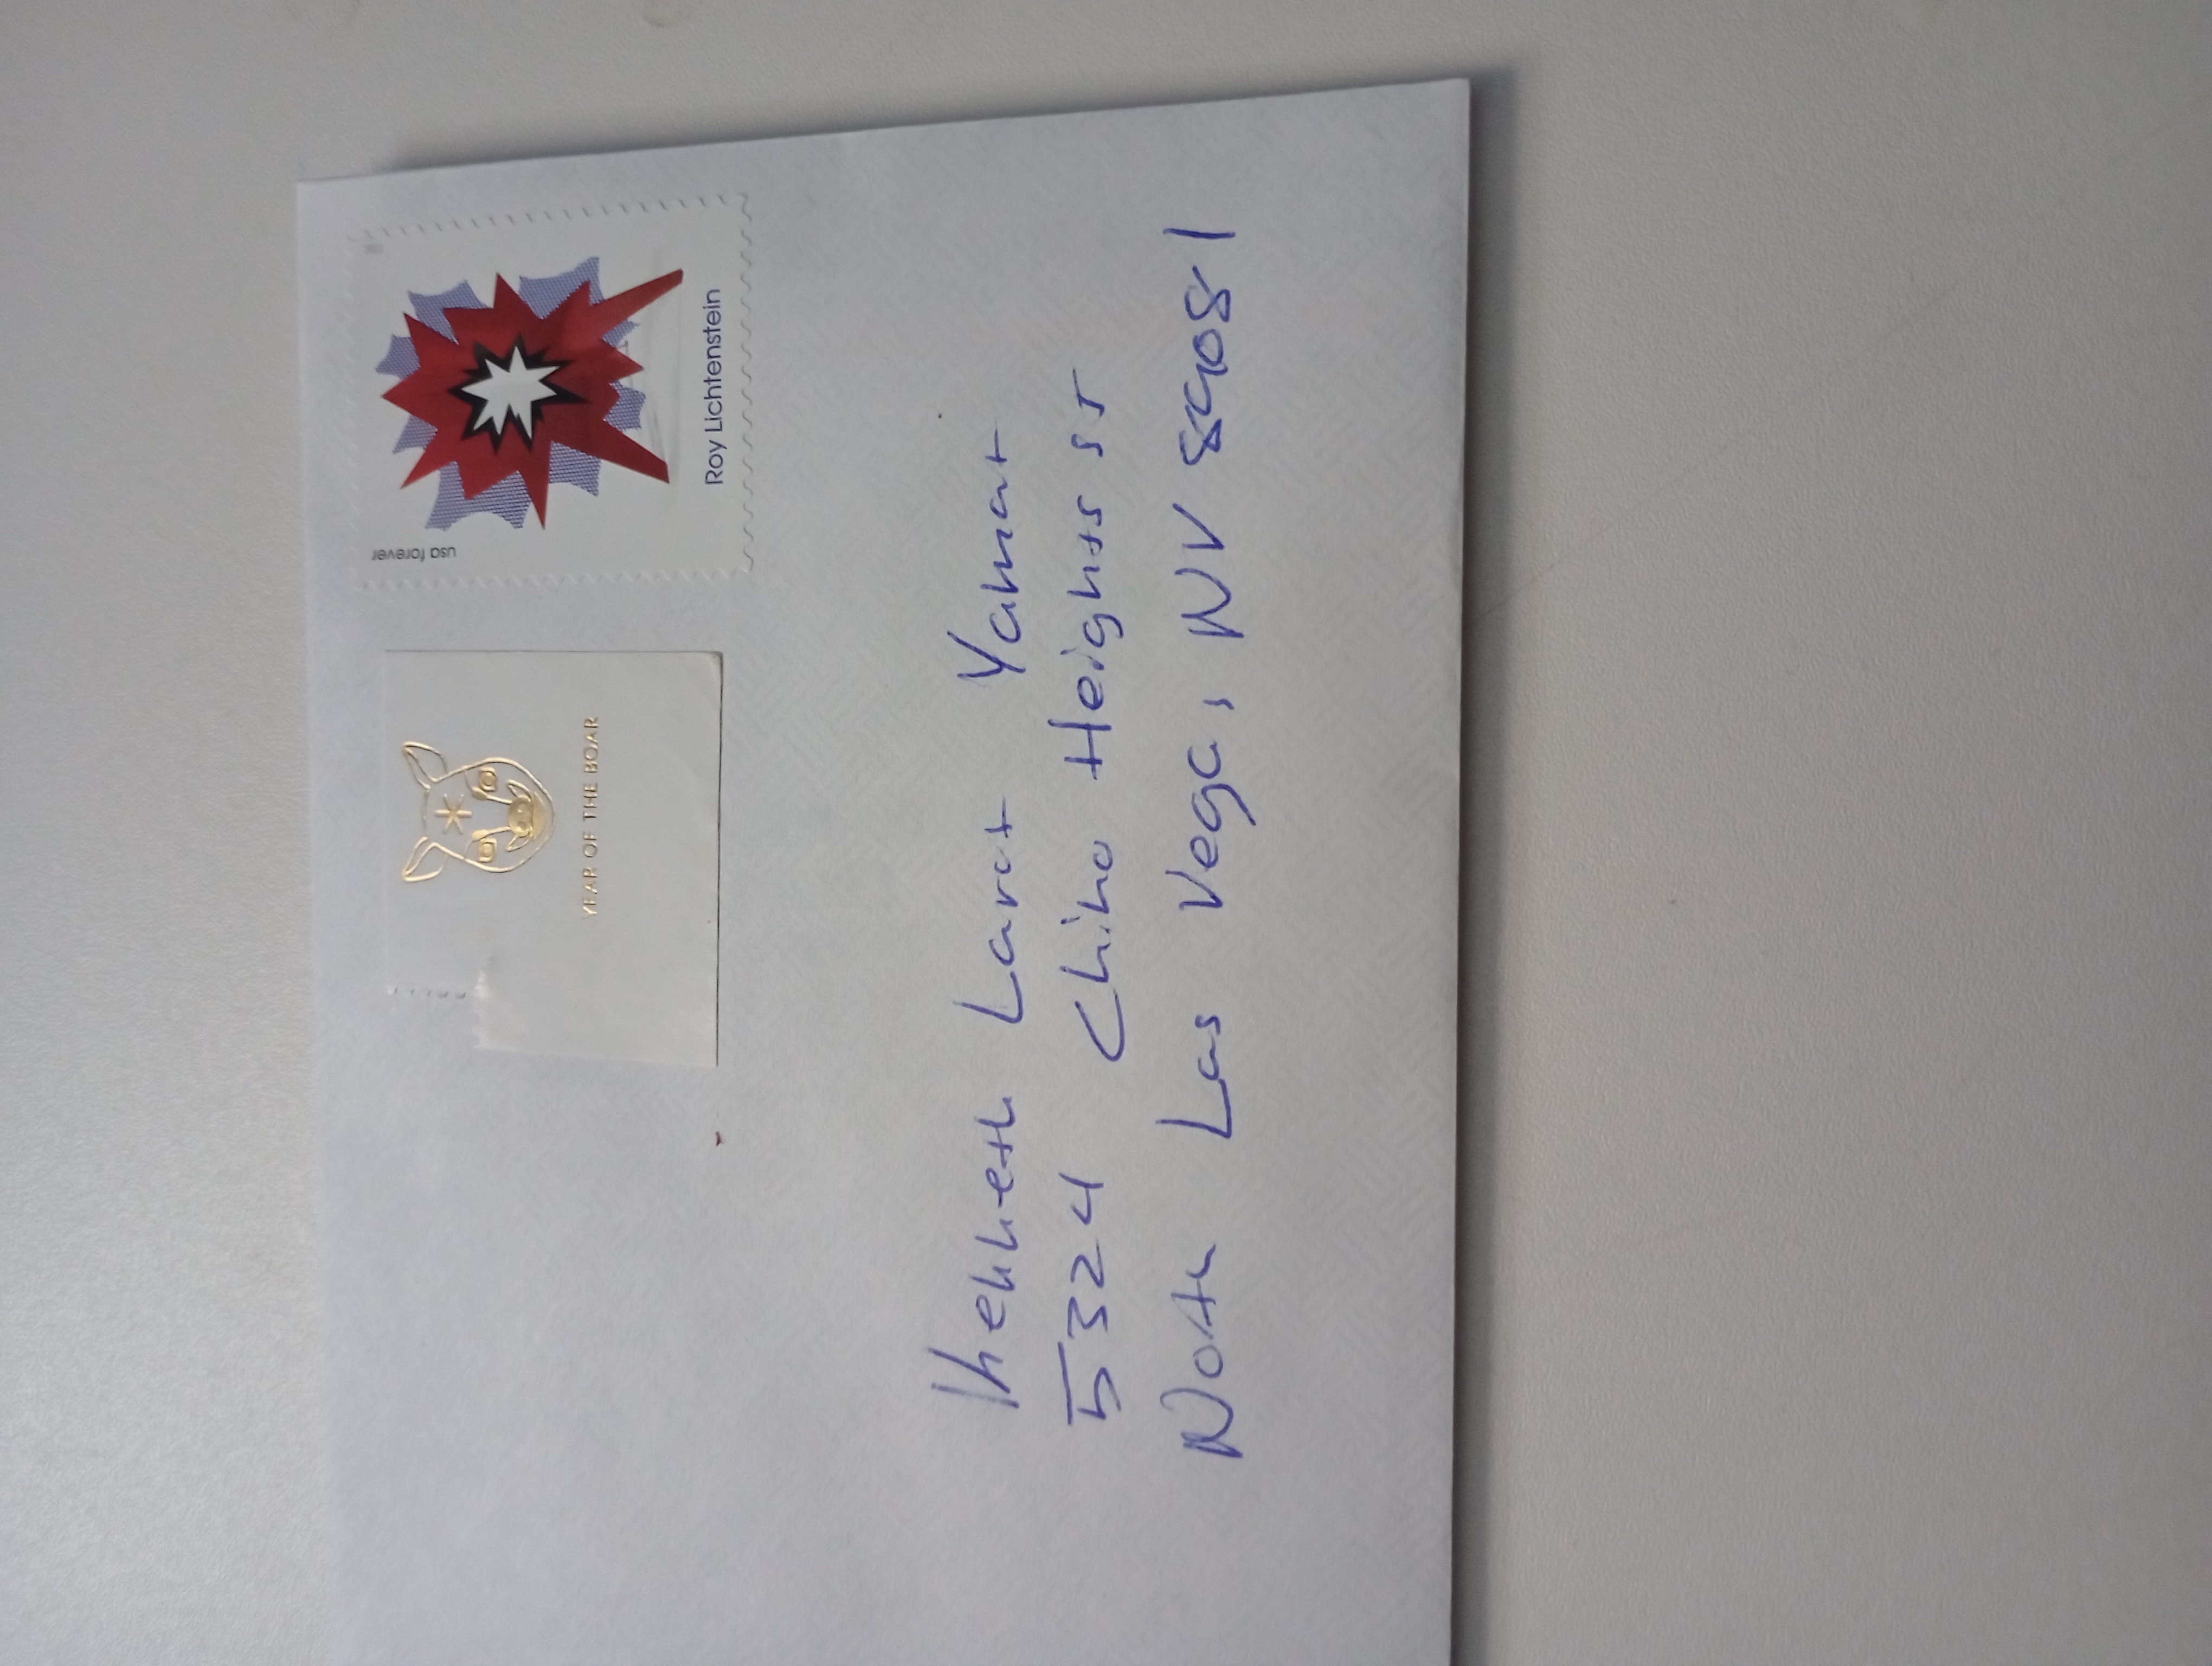 usa forever
YEAR OF THE BOAR
Roy Lichtenstein
Kenneth Larot Yamat
5324 Chino Heights ST
North Las Vega, NV 89081